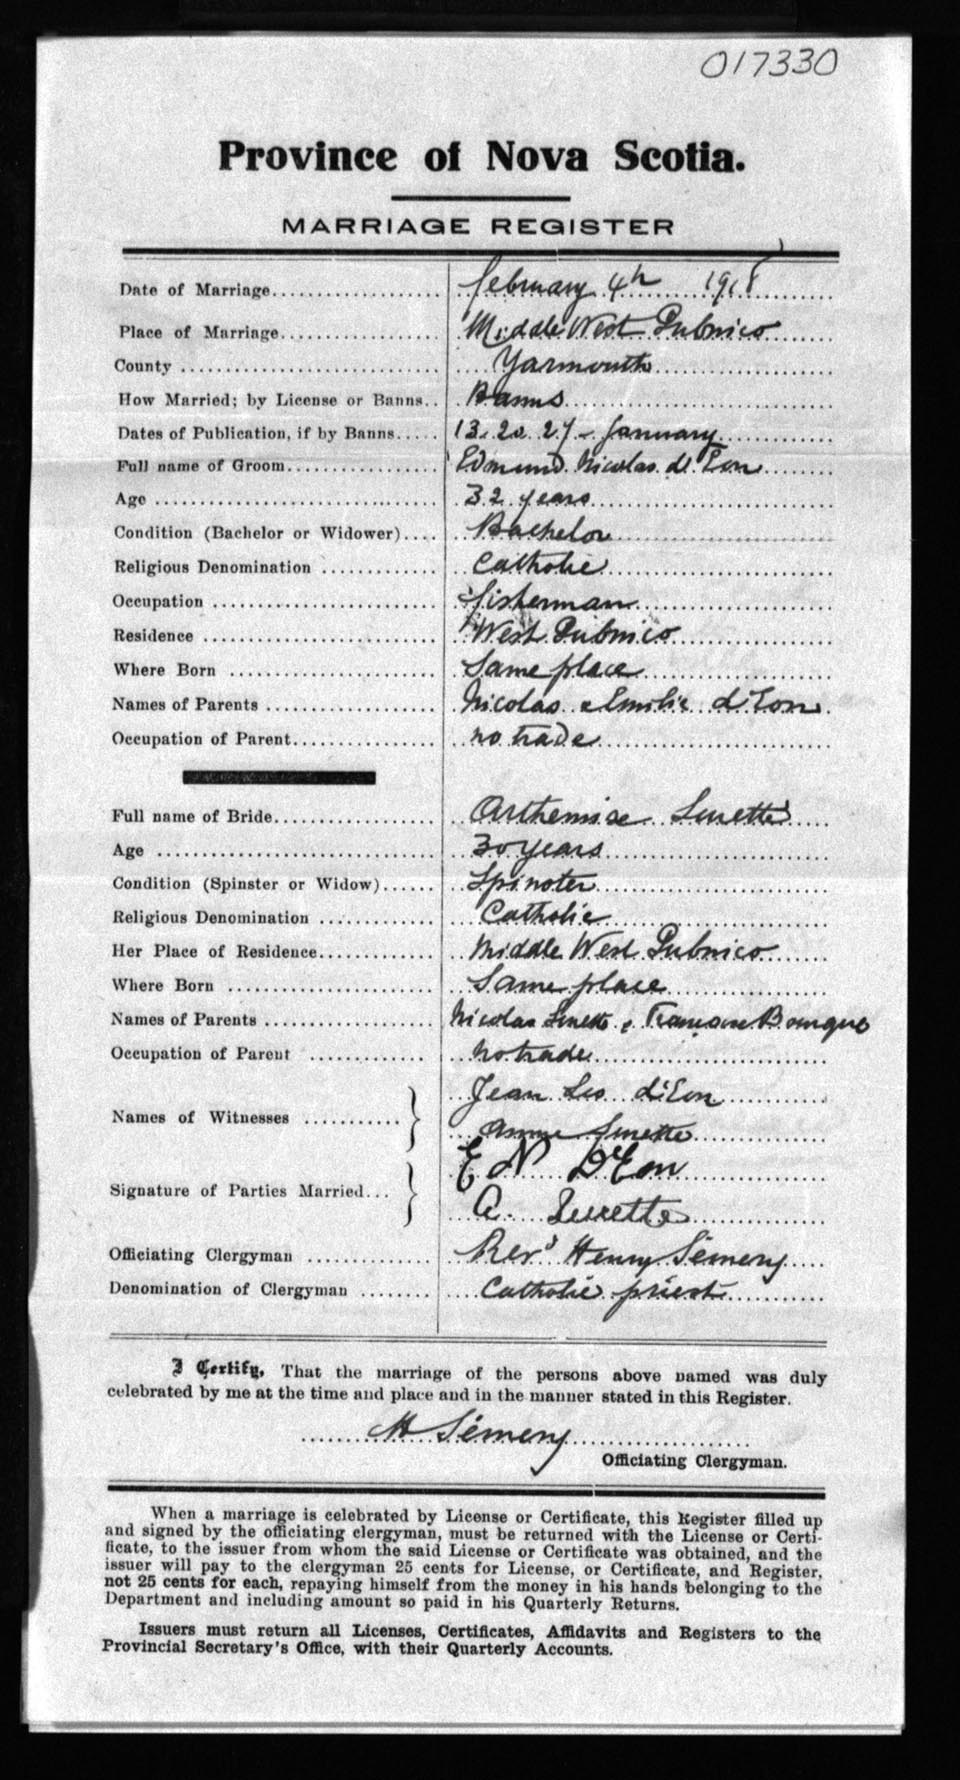 017330
Province of Nova Scotia.
MARRIAGE REGISTER
Date of Marriage.................... february 4th 1918
Place of Marriage................... Middle West Pubnico
County .............................. Yarmouth
How Married; by License or Banns.. Banns
Dates of Publication, if by Banns..... 13. 20. 27 - January
Full name of Groom.................. Edmund Nicolas d'Eon
Age ................................. 32 years
Condition (Bachelor or Widower).... Bachelor
Religious Denomination ............. Catholic
Occupation .......................... fisherman
Residence ........................... West Pubnico
Where Born ........................ Same place
Names of Parents .................... Nicolas & Emilie d'Eon
Occupation of Parent................. no trade
Full name of Bride.................... Arthemise Surette
Age ................................. 30 years
Condition (Spinster or Widow)...... Spinster
Religious Denomination ............. Catholic
Her Place of Residence.............. Middle West Pubnico
Where Born ........................ Same place
Names of Parents .................... Nicolas Surette & Bourque
Occupation of Parent ............. No trade
Names of Witnesses ........... } Jean Leo d'Eon
Surette
Signature of Parties Married... } E N D'Eon
A. Surette
Officiating Clergyman ............ Revd Henry Sémery
Denomination of Clergyman ........ Catholic priest
I Certify, That the marriage of the persons above named was duly
celebrated by me at the time and place and in the manner stated in this Register.
H Sémery
Officiating Clergyman.
When a marriage is celebrated by License or Certificate, this Register filled up
and signed by the officiating clergyman, must be returned with the License or Certi-
ficate, to the issuer from whom the said License or Certificate was obtained, and the
issuer will pay to the clergyman 25 cents for License, or Certificate, and Register,
not 25 cents for each, repaying himself from the money in his hands belonging to the
Department and including amount so paid in his Quarterly Returns.
Issuers must return all Licenses, Certificates, Affidavits and Registers to the
Provincial Secretary's Office, with their Quarterly Accounts.